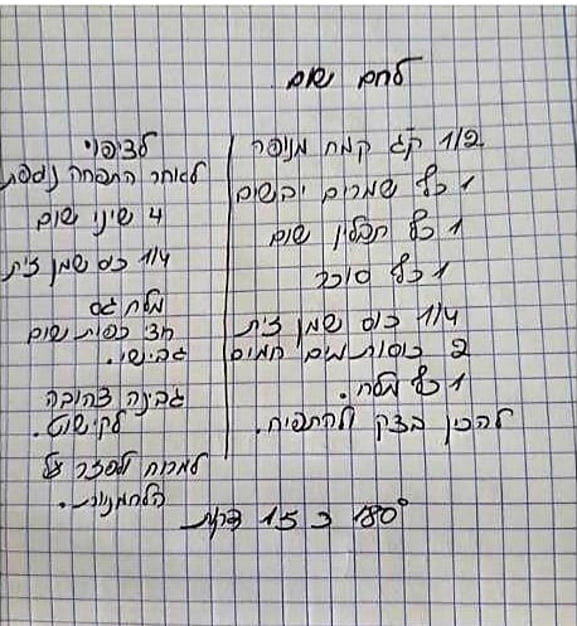 לחם שום
1/2 קג קמח מנופה
1 כף שמרים יבשים
1 כף תבלין שום
1 כף סוכר
1/4 כוס שמן זית
2 כוסות מים חמים
1 כף מלח.
להכין בצק ולהתפיח.
לציפוי
לאחר התפחה נוספת
4 שיני שום
1/4 כוס שמן זית
מלח גס
חצי כפית שום
גבישי.
גבינה צהובה
לקישוט.
למרוח ולפזר על
הלחמניות.
180° כ 15 דקות